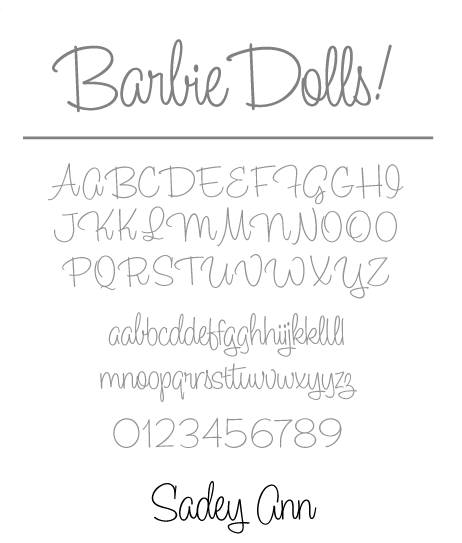 Barbie Dolls!
AABCDEEFFGGHI
JKKLMMNNOOO
PQRSTUVWXYZ
aabbcddeffgghhiijkklll
mnoopqrrssttuvwxyyzz
0123456789
Sadey Ann